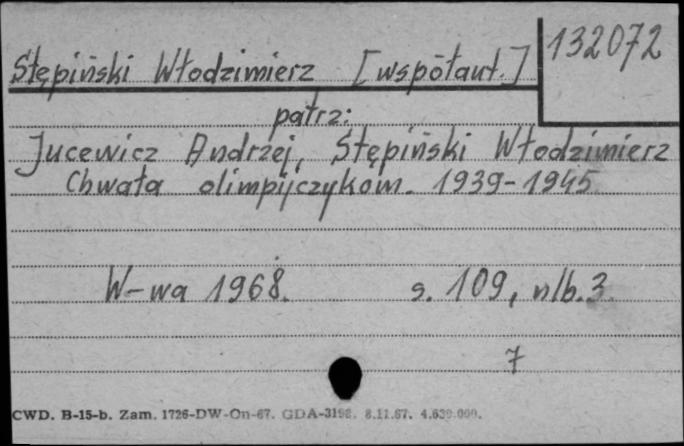 132072
Stępiński Włodzimierz [współaut.]
patrz:
Jucewicz Andrzej, Stępiński Włodzimierz
Chwała olimpijczykom. 1939-1945
W-wa 1968. s. 109, nlb. 3.
7
CWD. B-15-b. Zam. 1726-DW-On-67. GDA-3198. 8.11.67. 4.639.000.